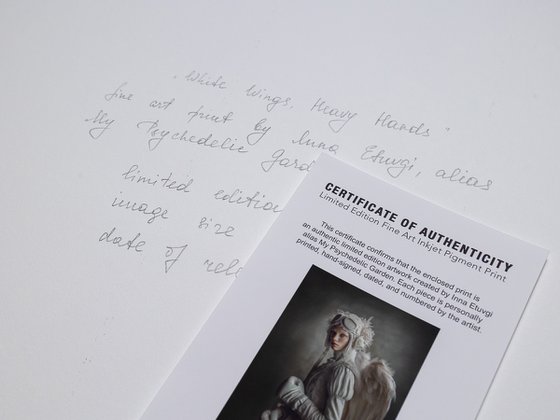 "White Wings, Heavy Hands"
fine art print by Inna Etuvgi, alias
My Psychedelic Gard
limited edition
image size
date of rel
CERTIFICATE OF AUTHENTICITY
Limited Edition Fine Art Inkjet Pigment Print
This certificate confirms that the enclosed print is
an authentic limited edition artwork created by Inna Etuvgi
alias My Psychedelic Garden. Each piece is personally
printed, hand-signed, dated, and numbered by the artist.